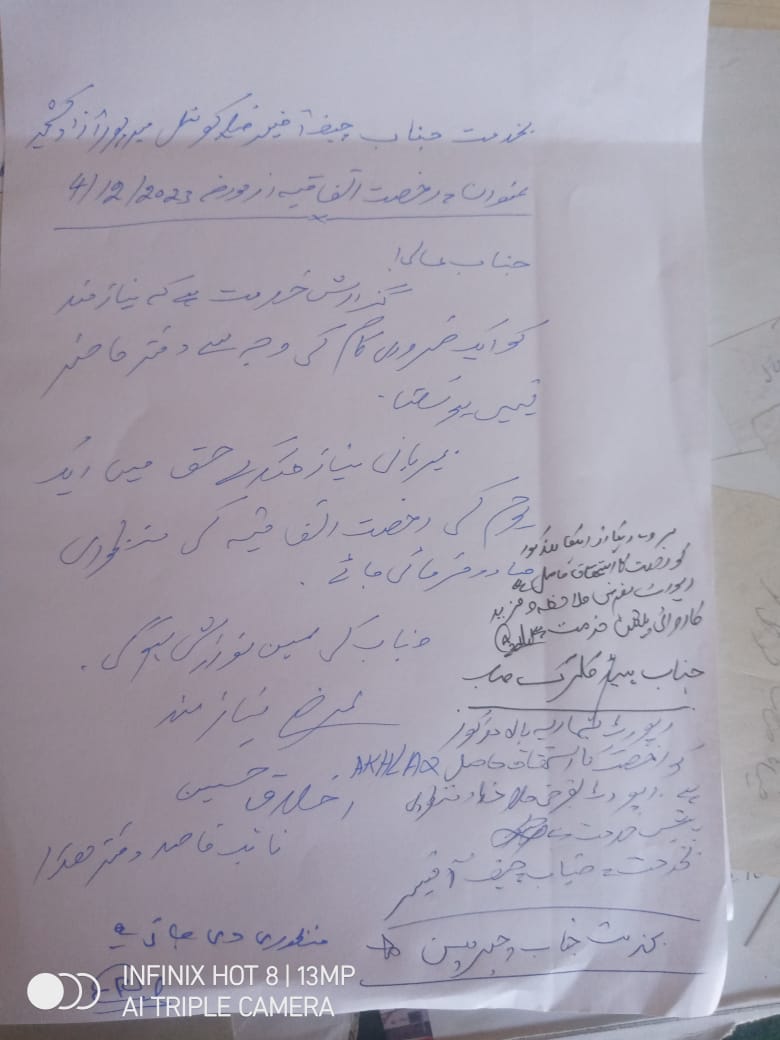 بخدمت جناب چیف آفیسر ضلع کونسل میرپور آزاد کشمیر
عنوان: رخصت اتفاقیہ از مورخہ 4/12/2023
جناب عالی!
گزارش خدمت ہے کہ نیاز مند
کو ایک ضروری کام کی وجہ سے دفتر حاضر
نہیں ہو سکتا۔
مہربانی نیاز مند کے حق میں ایک
یوم کی رخصت اتفاقیہ کی منظوری
صادر فرمائی جائے۔
جناب کی عین نوازش ہو گی۔
عرضے نیاز مند
اخلاق حسین
نائب قاصد دفتر ھذا
کو رخصت کا استحقاق حاصل ہے
رپورٹ بغرض ملاحظہ و مزید
کاروائی خدمت
جناب ہیڈ کلرک صاحب
رپورٹ شماریہ بالا مذکور
کو رخصت کا استحقاق حاصل AKHLAQ
ہے۔ رپورٹ بغرض ملاحظہ و منظوری
پیش خدمت ہے
بخدمت جناب چیف آفیسر
بخدمت جناب چیرمین
منظوری دی جاتی ہے
INFINIX HOT 8 | 13MP
AI TRIPLE CAMERA